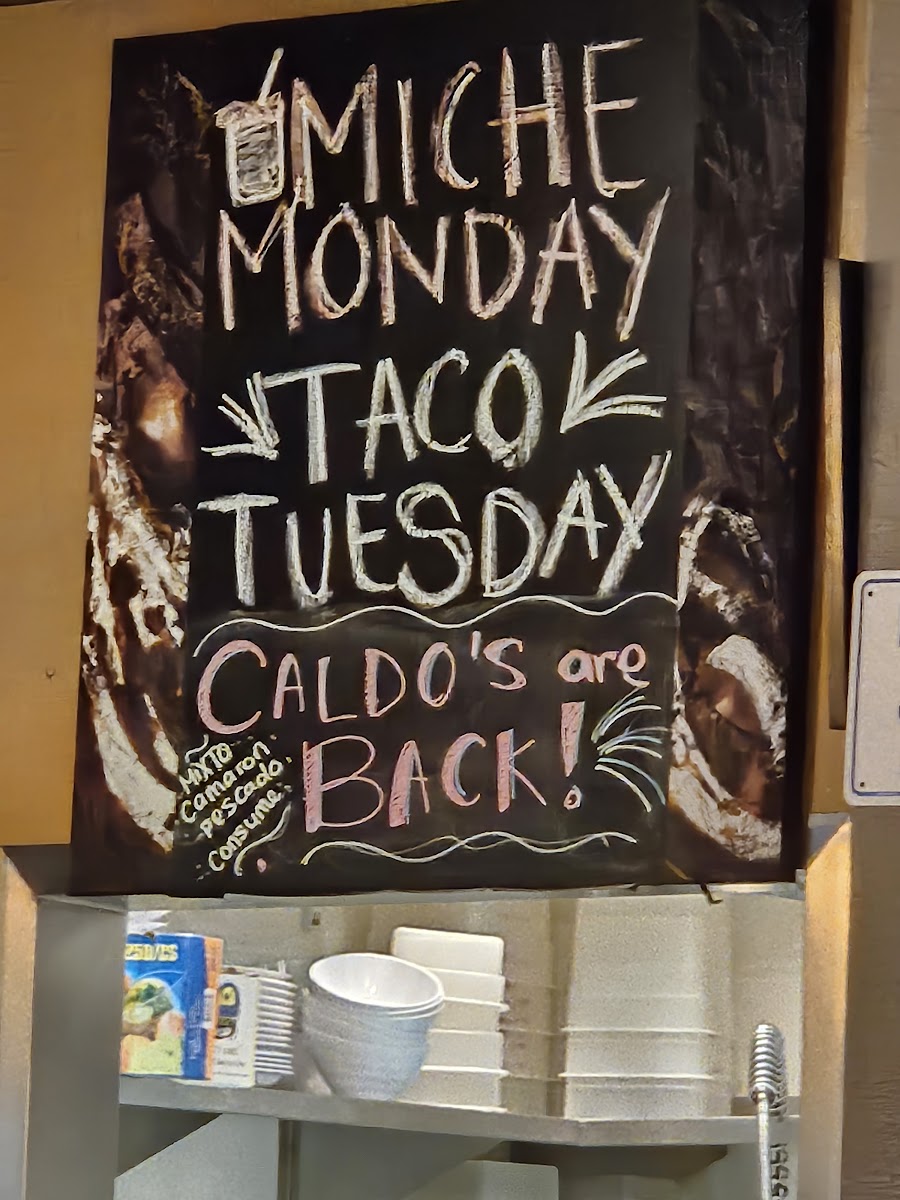 MICHE
MONDAY
TACO
TUESDAY
CALDO'S are
BACK!
MIXTO
Camaron
pescado.
Consume.
250/CS